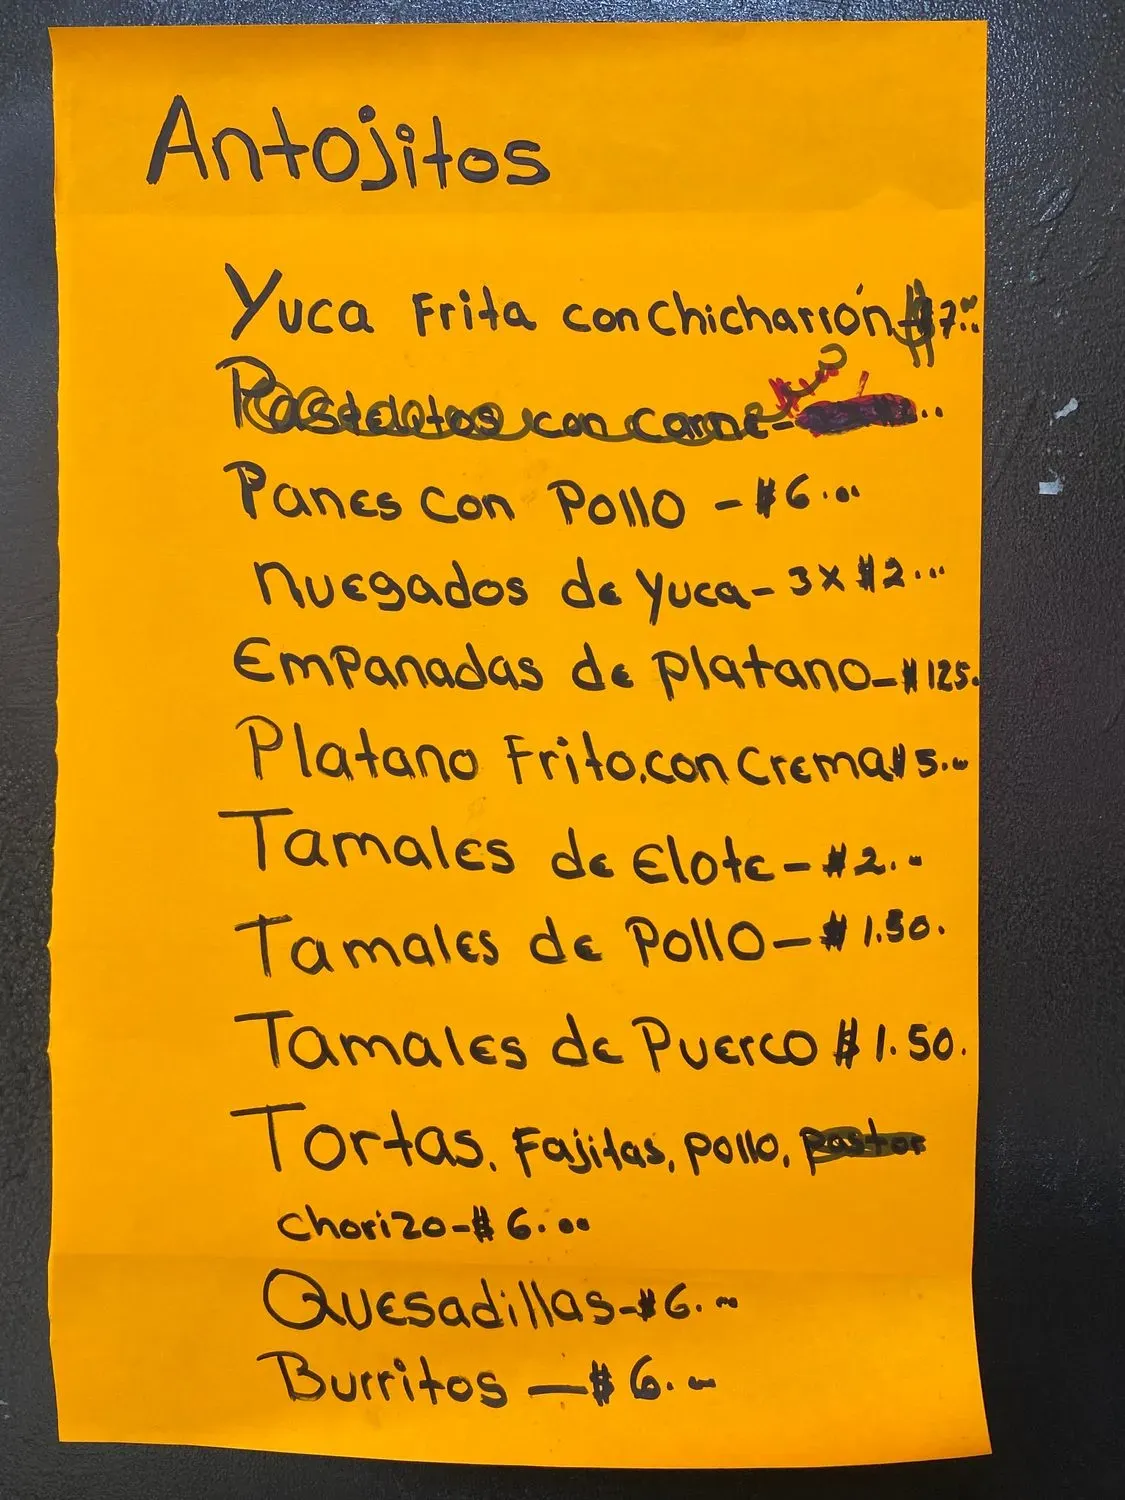 Antojitos
Yuca Frita con Chicharrón $7.00
Pastelitos con carne-
Panes con Pollo - $6.00
Nuegados de Yuca - 3x$2.00
Empanadas de Platano - $125.
Platano Frito.con Crema $5.00
Tamales de Elote - $2.00
Tamales de Pollo - $1.50.
Tamales de Puerco $1.50.
Tortas. Fajitas, pollo, pastor
chorizo - $6.00
Quesadillas - $6.00
Burritos - $6.00